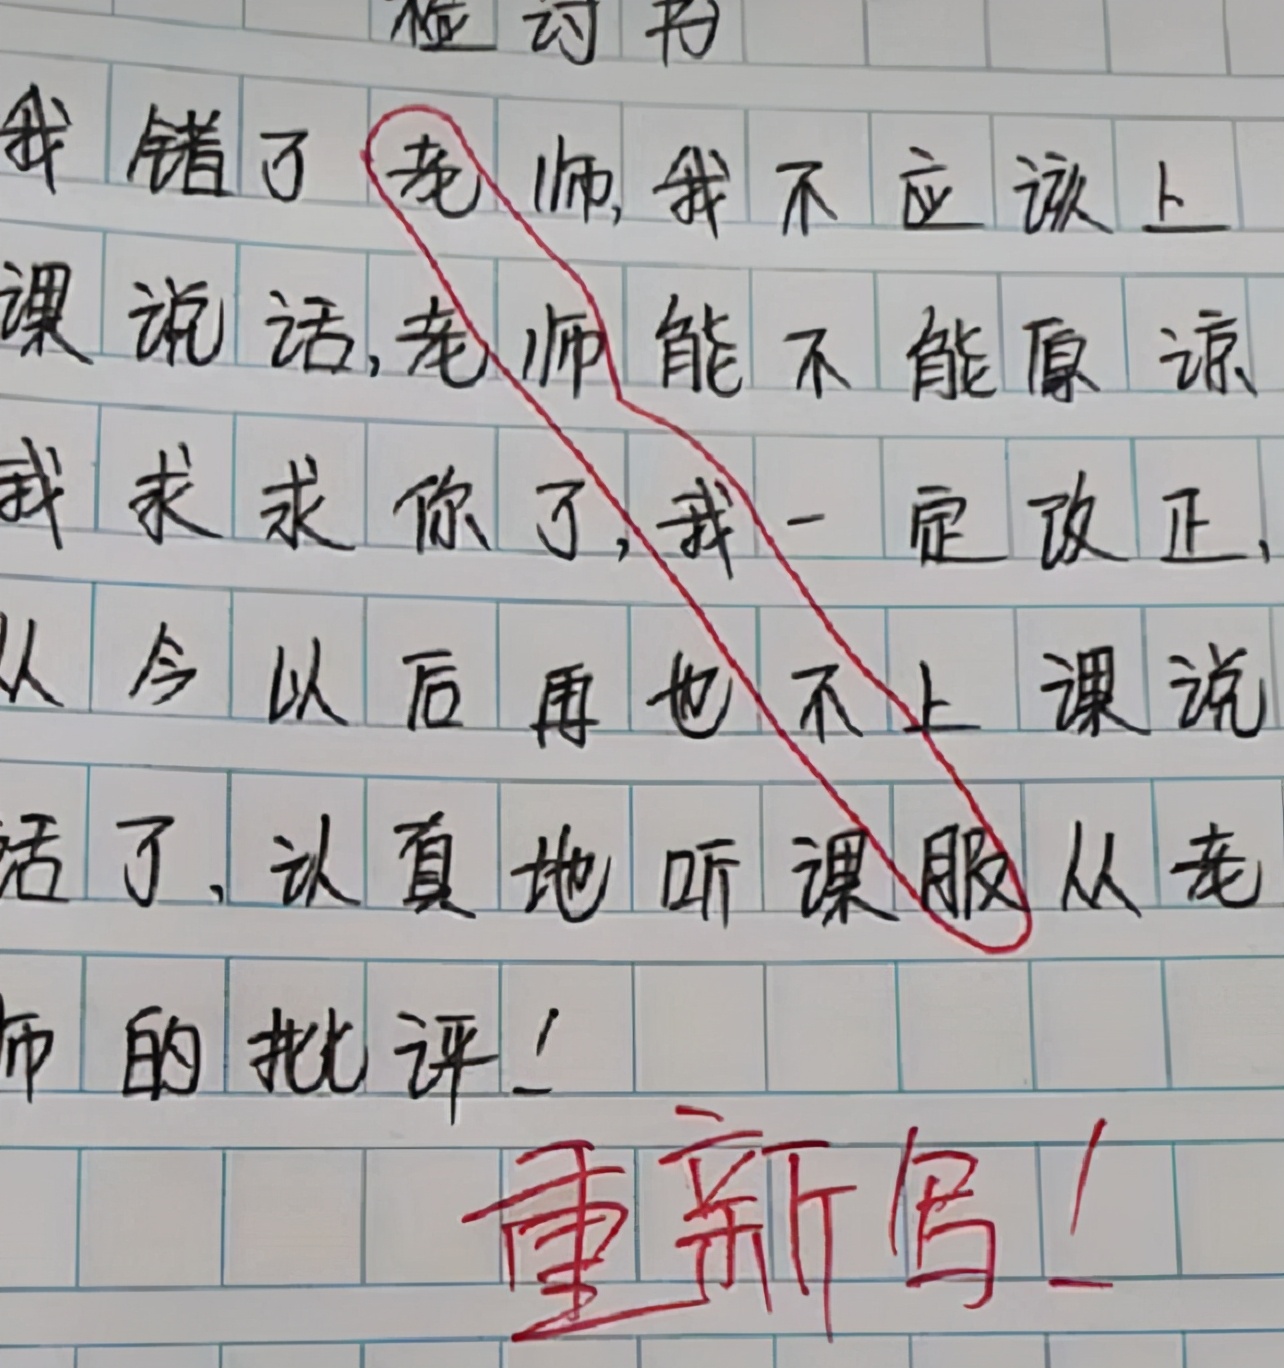 检讨书
我错了老师,我不应该上
课说话,老师能不能原谅
我求求你了,我一定改正,
从今以后再也不上课说
话了,认真地听课服从老
师的批评!
重新写!